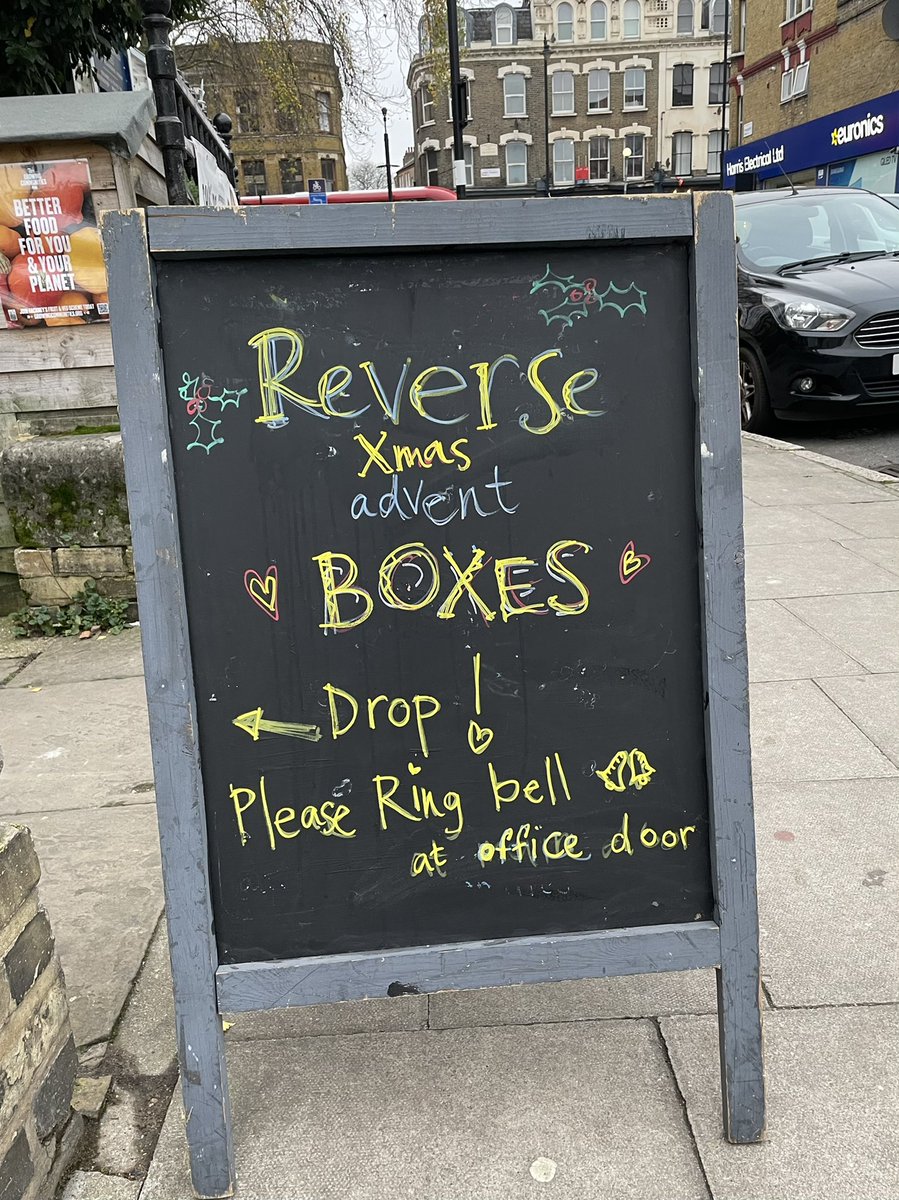 Reverse
Xmas
advent
BOXES
Drop!
Please Ring bell
at office door
BETTER
FOOD
FOR YOU
& YOUR
PLANET
Harris Electrical
euronics